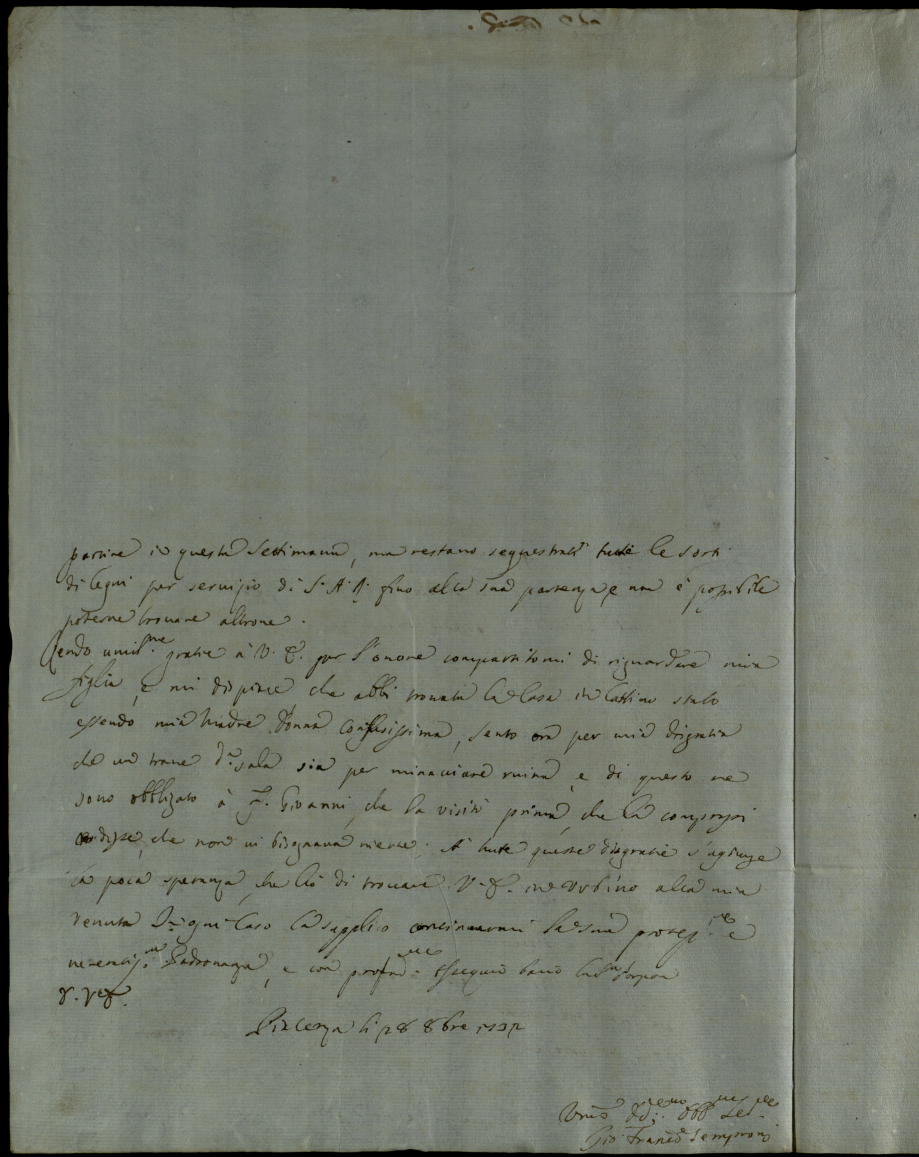 partire in questa settimana, ma restano sequestrati tutte le sorti
di legni per servizio di S. A. R. fino alla sua partenza, e non è possibile
poterne trovare altrove.
Rendo umil.me gratie à V. E. per l'onore compartitomi di riguardare mia
figlia, e mi dispiace che abbi trovata la Casa in cattivo stato
essendo mia Madre Donna, sento ora per mia disgratia
che un trave d.a sala sia per minacciare ruina, e di questo ne
sono obbligato à F. Giovanni, che la visitò prima, che la comprassi
e disse, che non vi bisognava niente. A tute queste disgratie s'agiunge
la poca speranza, che hò di trovare V. E. in Urbino alla mia
venuta. In ogni caso la supplico continuarmi la sua protez.ne e
Padronanza, e con prof.mo ossequio bacio la
V. E.
Piacenza li 28 8bre 1732
Umo
Gio Franc.o Semproni